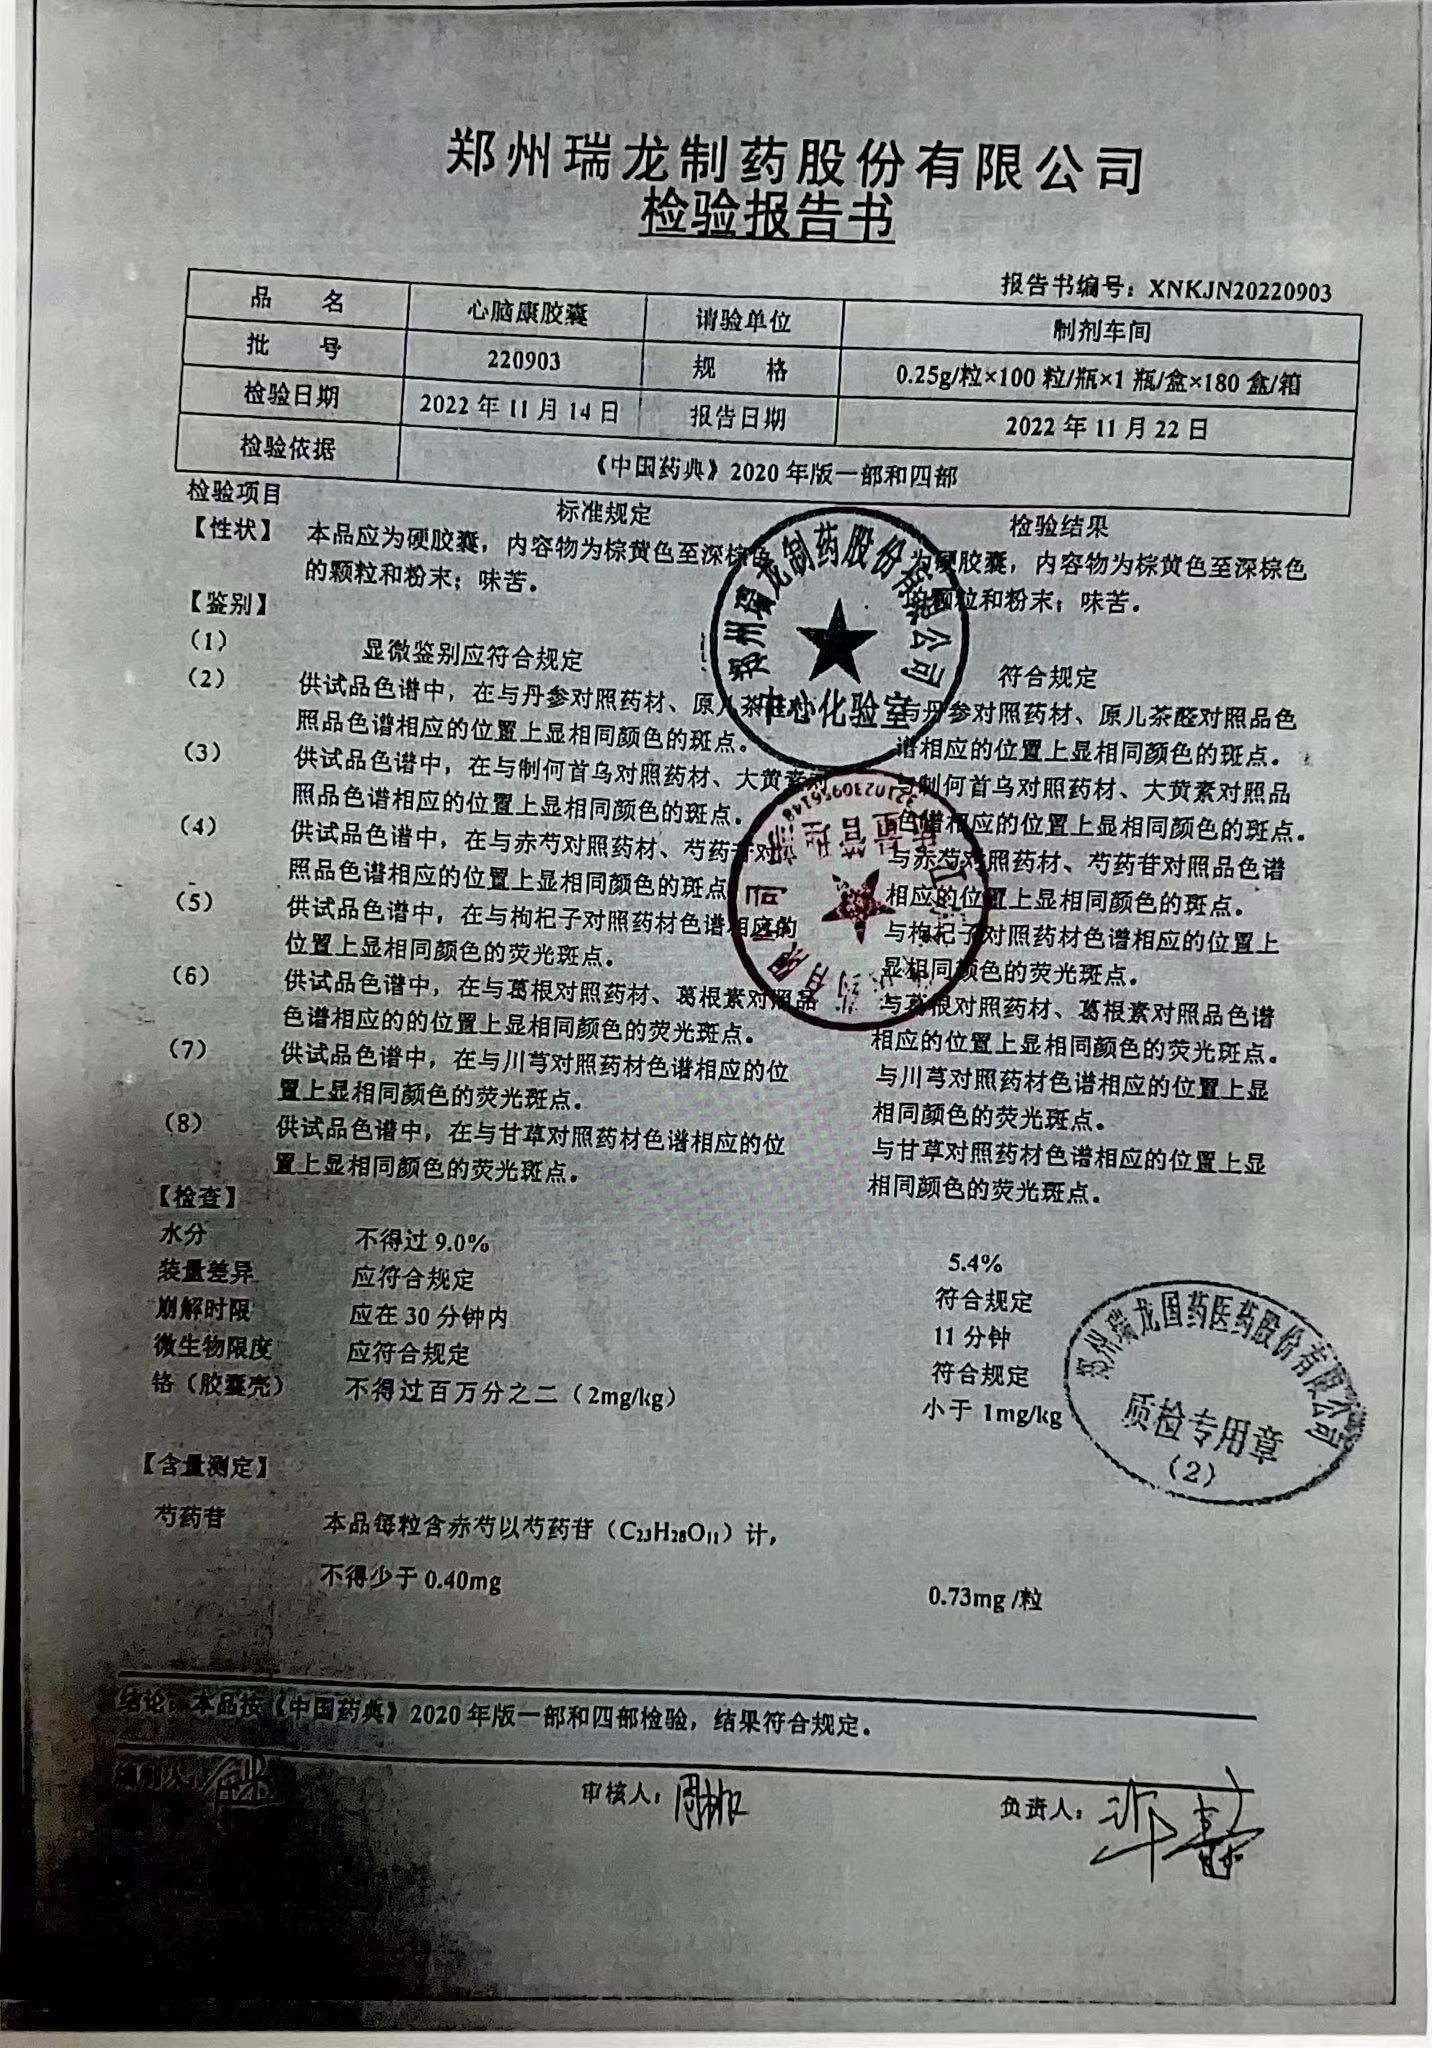 郑州瑞龙制药股份有限公司
检验报告书
报告书编号：XNKJN20220903
品 名 心脑康胶囊 请验单位 制剂车间
批 号 220903 规 格 0.25g/粒×100粒/瓶×1瓶/盒×180盒/箱
检验日期 2022年11月14日 报告日期 2022年11月22日
检验依据 《中国药典》2020年版一部和四部
检验项目 标准规定 检验结果
【性状】 本品应为硬胶囊，内容物为棕黄色至深棕色 为硬胶囊，内容物为棕黄色至深棕色
的颗粒和粉末；味苦。 的颗粒和粉末；味苦。
【鉴别】
（1） 显微鉴别应符合规定 符合规定
（2） 供试品色谱中，在与丹参对照药材、原儿茶 与丹参对照药材、原儿茶醛对照品色
照品色谱相应的位置上显相同颜色的斑点。 谱相应的位置上显相同颜色的斑点。
（3） 供试品色谱中，在与制何首乌对照药材、大黄素对 与制何首乌对照药材、大黄素对照品
照品色谱相应的位置上显相同颜色的斑点。 色谱相应的位置上显相同颜色的斑点。
（4） 供试品色谱中，在与赤芍对照药材、芍药苷对 与赤芍对照药材、芍药苷对照品色谱
照品色谱相应的位置上显相同颜色的斑点 相应的位置上显相同颜色的斑点。
（5） 供试品色谱中，在与枸杞子对照药材色谱相应的 与枸杞子对照药材色谱相应的位置上
位置上显相同颜色的荧光斑点。 显相同颜色的荧光斑点。
（6） 供试品色谱中，在与葛根对照药材、葛根素对照品 与葛根对照药材、葛根素对照品色谱
色谱相应的的位置上显相同颜色的荧光斑点。 相应的位置上显相同颜色的荧光斑点。
（7） 供试品色谱中，在与川芎对照药材色谱相应的位 与川芎对照药材色谱相应的位置上显
置上显相同颜色的荧光斑点。 相同颜色的荧光斑点。
（8） 供试品色谱中，在与甘草对照药材色谱相应的位 与甘草对照药材色谱相应的位置上显
置上显相同颜色的荧光斑点。 相同颜色的荧光斑点。
【检查】
水分 不得过9.0% 5.4%
装量差异 应符合规定 符合规定
崩解时限 应在30分钟内 11分钟
微生物限度 应符合规定 符合规定
铬（胶囊壳） 不得过百万分之二（2mg/kg） 小于 1mg/kg
【含量测定】
芍药苷 本品每粒含赤芍以芍药苷（C₂₃H₂₈O₁₁）计，
不得少于0.40mg 0.73mg /粒
结论：本品按《中国药典》2020年版一部和四部检验，结果符合规定。
审核人： 负责人：
郑州瑞龙制药股份有限公司
中心化验室
质量管理部
郑州瑞龙国药医药股份有限公司
质检专用章
（2）